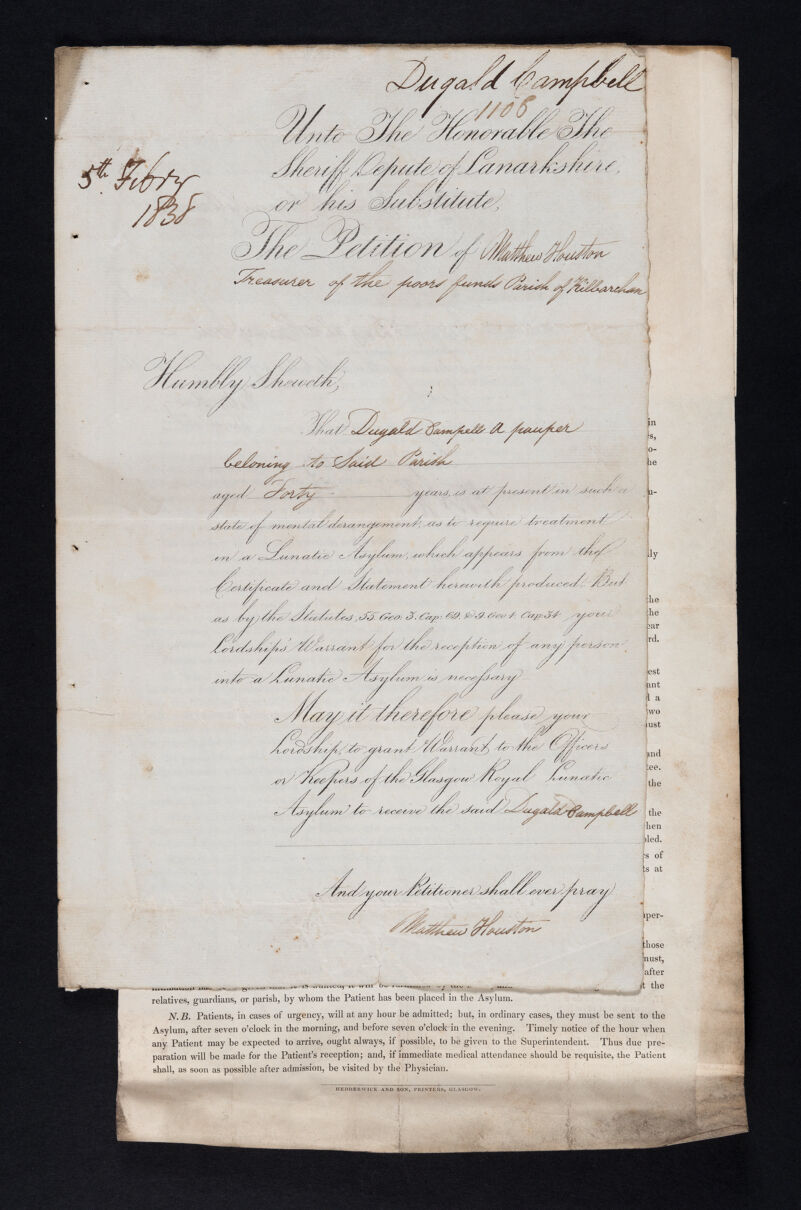 Dugald Campbell
1108
5th Febry
1838
Unto The Honorable The
Sheriff Depute of Lanarkshire,
or his Substitute,
The Petition of Matthew Houston
Treasurer of the poors funds Parish of Kilbarchan
Humbly Sheweth,
That Dugald Campell a pauper
beloning to Said Parish
aged Forty years, is at present in such a
state of mental derangement, as to require treatment
in a Lunatic Asylum, which appears from the
Certificate and Statement herewith produced. But
as by the Statutes, 55. Geo: 3. Cap: 69. & 9. Geo 4. Cap: 34 your
Lordships' Warrant for the reception of any person
into a Lunatic Asylum is necessary
May it therefore please your
Lordship, to grant Warrant to the Officers
or Keepers of the Glasgow Royal Lunatic
Asylum to receive the said Dugald Campbell
And your Petitioner shall ever pray
Matthew Houston
in
s,
o-
he
u-
ly
the
the
ear
rd.
est
ant
l a
two
ust
and
tee.
the
the
hen
led.
s of
ts at
per-
those
nust,
after
t the
relatives, guardians, or parish, by whom the Patient has been placed in the Asylum.
N. B. Patients, in cases of urgency, will at any hour be admitted; but, in ordinary cases, they must be sent to the
Asylum, after seven o'clock in the morning, and before seven o'clock in the evening. Timely notice of the hour when
any Patient may be expected to arrive, ought always, if possible, to be given to the Superintendent. Thus due pre-
paration will be made for the Patient's reception; and, if immediate medical attendance should be requisite, the Patient
shall, as soon as possible after admission, be visited by the Physician.
HEDDERWICK AND SON, PRINTERS, GLASGOW.